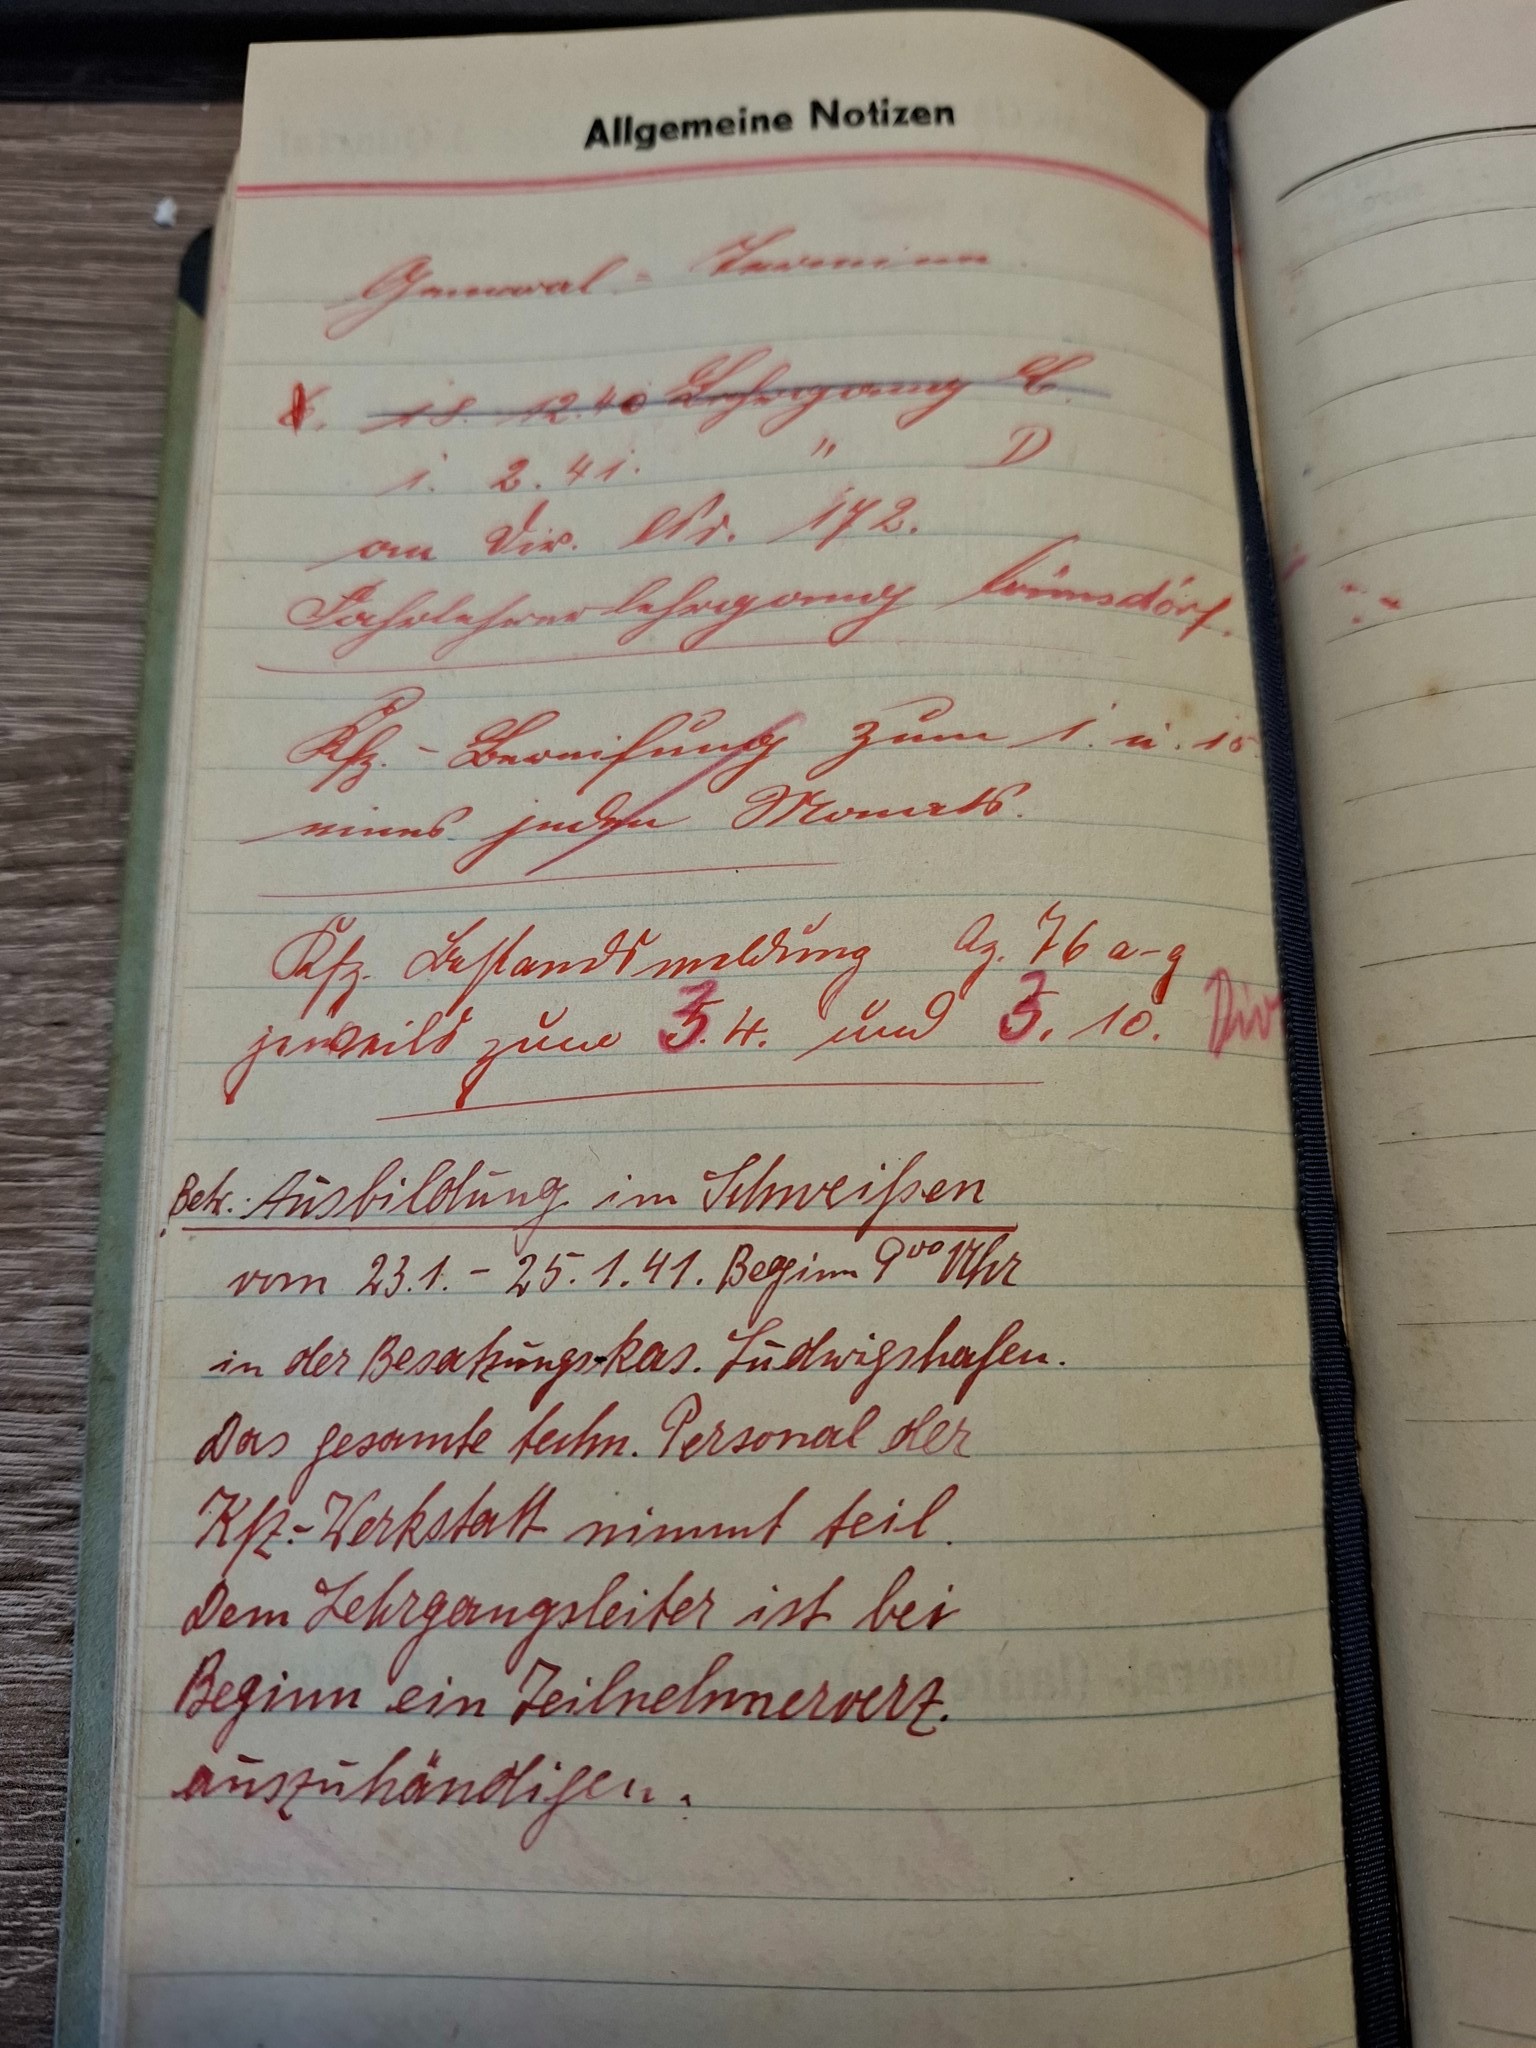 Allgemeine Notizen
General-Termine
18. 12.40 Lehrgang C.
1. 2. 41. " D
an Div. Nr. 172.
Fahrlehrerlehrgang Wünsdorf.
Kfz.-Bereifung zum 1. u. 15
eines jeden Monats.
Kfz. Bestandsmeldung Az. 76 a-g
jeweils zum 3.4. und 3. 10. Div
Betr. Ausbildung im Schweißen
vom 23.1. - 25.1.41. Beginn 9⁰⁰ Uhr
in der Besatzungs-kas. Ludwigshafen.
Das gesamte techn. Personal der
Kfz.-Werkstatt nimmt teil.
Dem Lehrgangsleiter ist bei
Beginn ein Teilnehmerverz.
auszuhändigen.